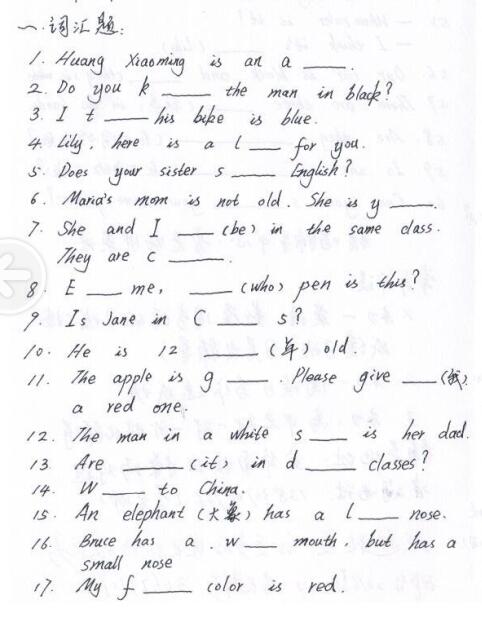 一.词汇题:
1. Huang Xiaoming is an a ____.
2. Do you k ____ the man in black?
3. I t ____ his bike is blue.
4. Lily, here is a l ___ for you.
5. Does your sister s ____ English?
6. Maria's mom is not old. She is y ____.
7. She and I ____ (be) in the same class.
They are c ____.
8. E ___ me, ____ (who) pen is this?
9. Is Jane in C ____ s?
10. He is 12 ____ (年) old.
11. The apple is g ____. Please give ___ (我)
a red one.
12. The man in a white s ___ is her dad.
13. Are ____ (it) in d ____ classes?
14. W ____ to China.
15. An elephant (大象) has a l ___ nose.
16. Bruce has a w ___ mouth, but has a
small nose
17. My f ____ color is red.